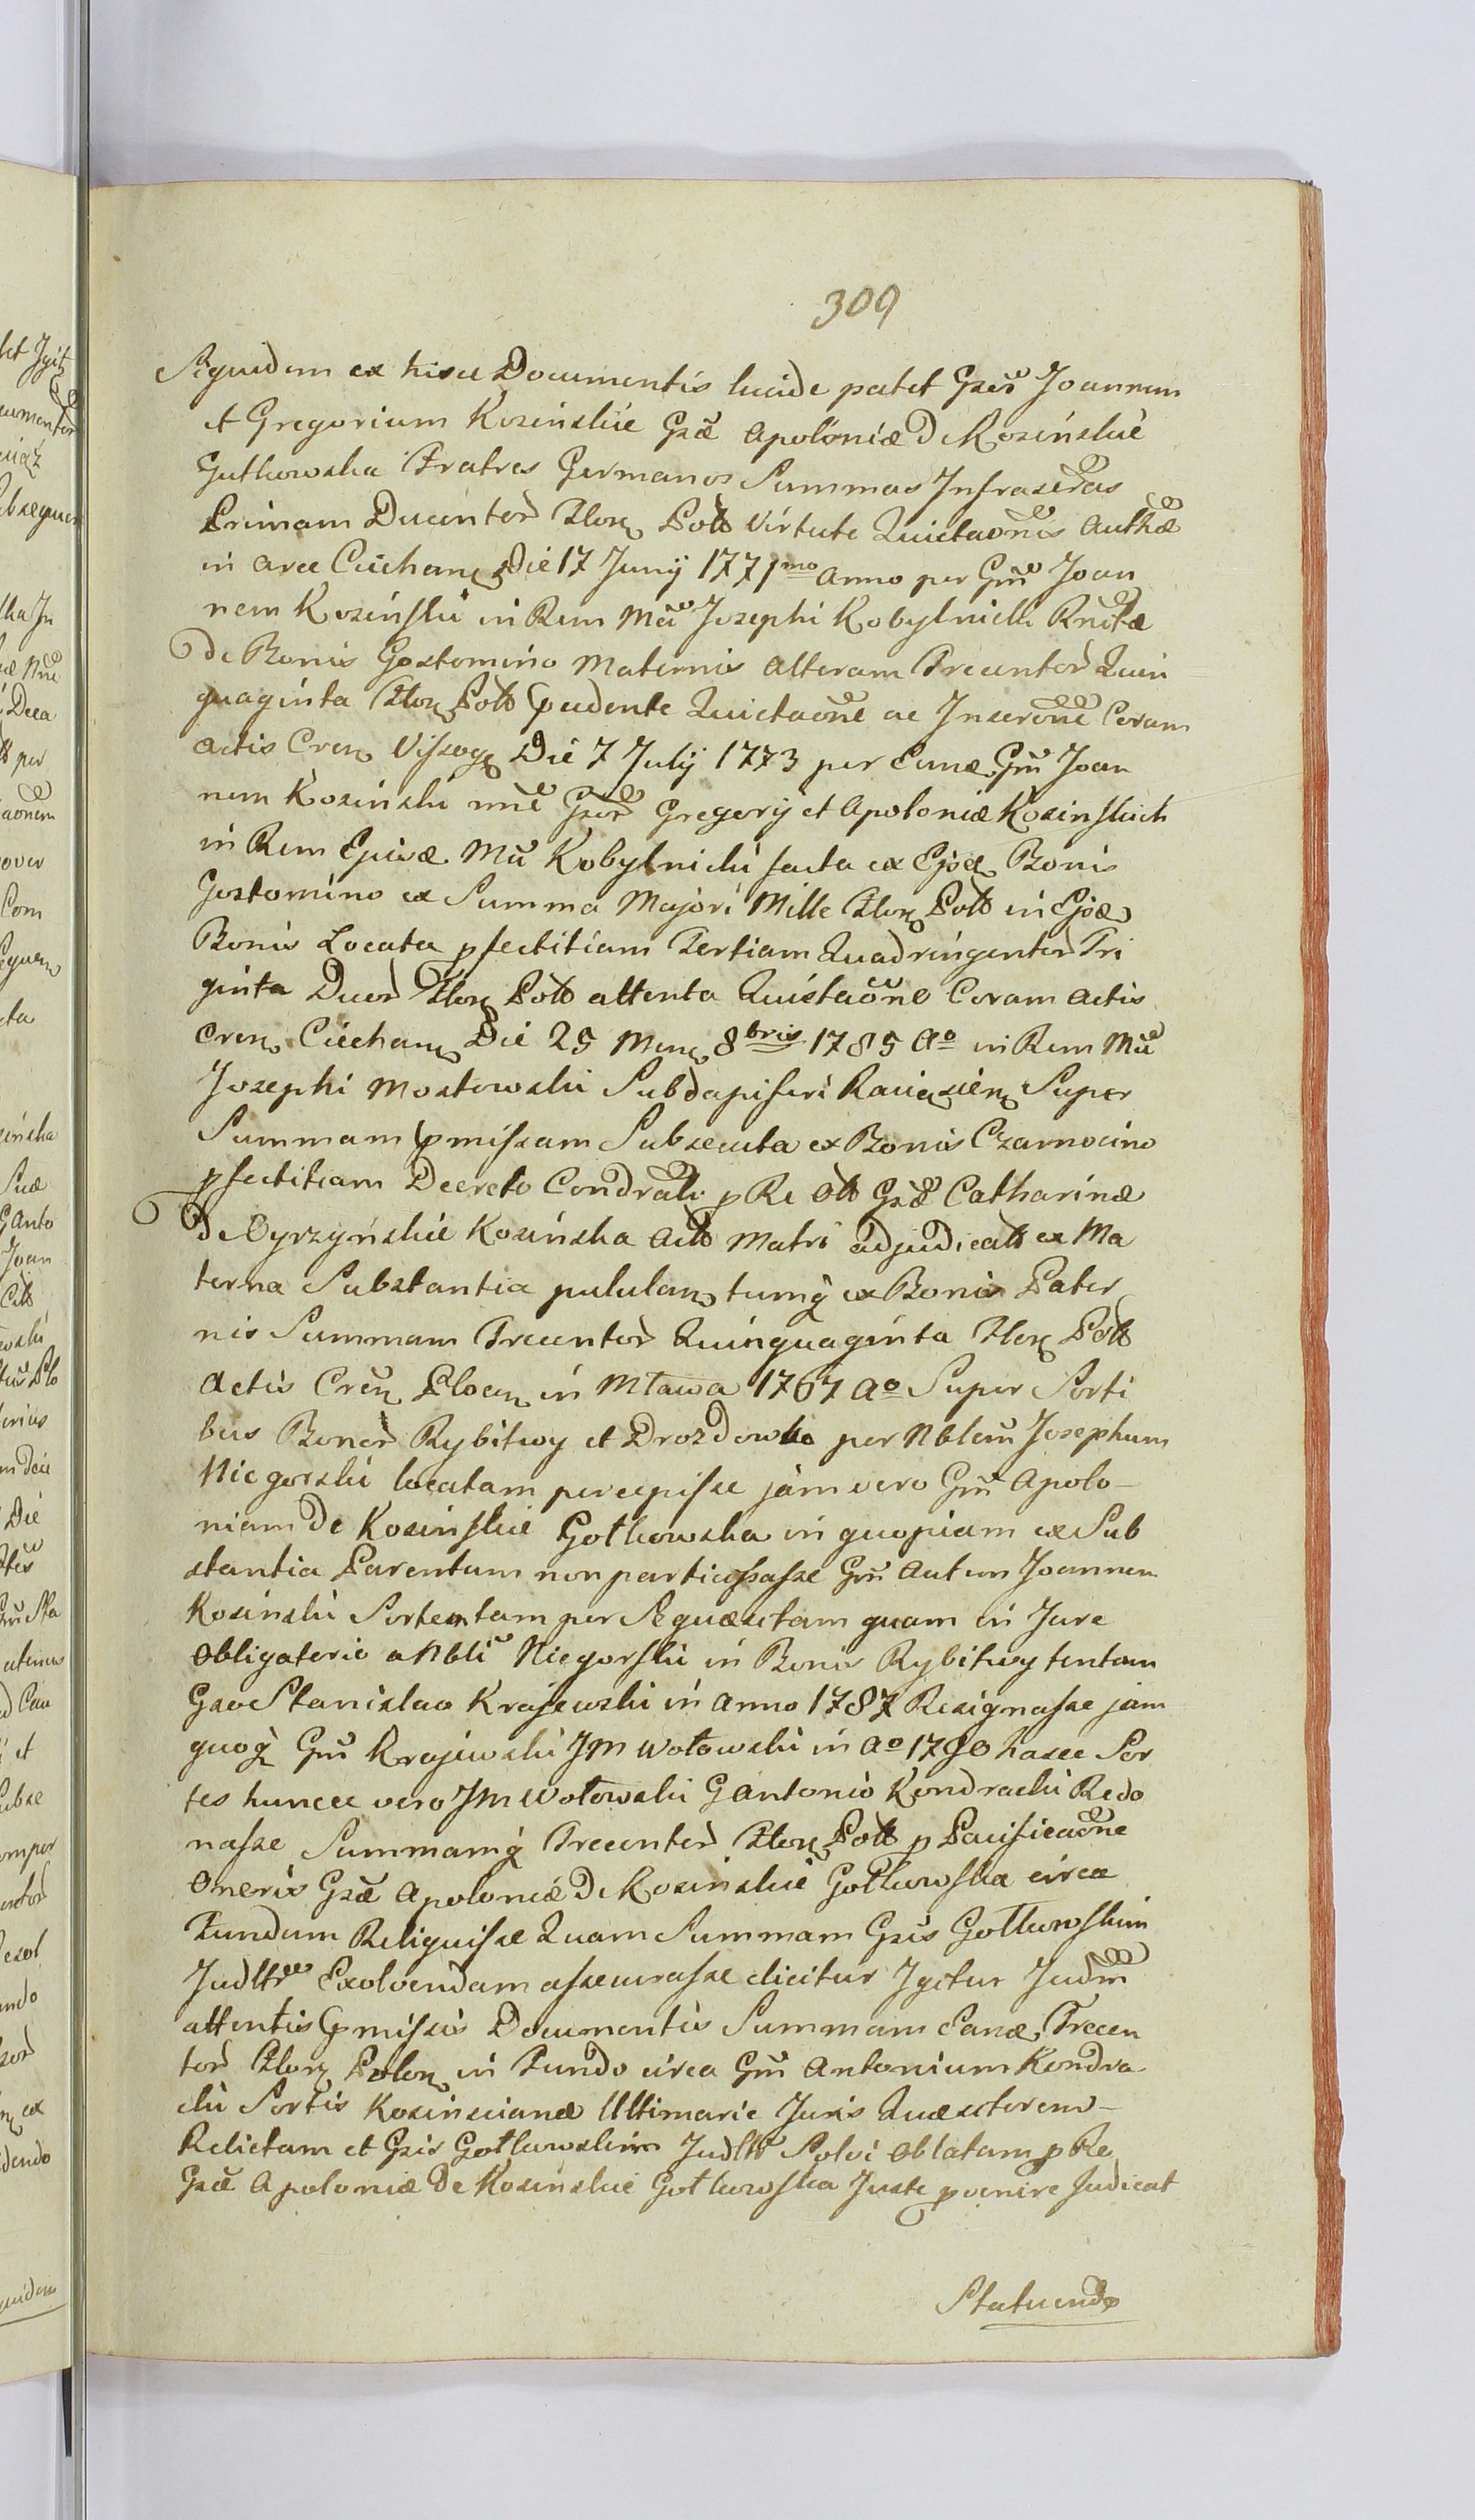 309
Siquidem ex hisce Documentis lucide patet Gsos Joannem
et Gregorium Kosinskie Gsæ Apoloniæ De Kosinskie
Gutkowska Fratres Germanos Summas Infrascras
Primam Ducentor Flor Poll Virtute Quietaonis Authæ
in Arce Ciechan Die 17 Junij 1771mo Anno per Gm Joan
nem Kosinski in Rem Mci Josephi Kobylnicki
De Bonis Gostomino Maternis Alteram Trecentor Quin
quaginta Flor Poll pcedente Quietaone ac Inscrone Coram
Actis Cren Vissog Die 7 Julij 1773 per Eunq Gm Joan
nem Kosinski nne Gsor Gregorij et Apoloniæ Kosinskich
in Rem Mci Kobylnicki facta ex Ejsq Bonis
Gostomino ex Summa Majori Mille Flor Poll in Ejsq
Bonis Locata pfectitiam Tertiam Quadringentor Tri
ginta Duor Flor Poll attenta Quietaone Coram Actis
Cren Ciechan Die 25 Men 8bris 1785 Ao in Rem Mci
Josephi Mostowski Subdapiferi Raciązien Super
Summam pmissam Subsecuta ex Bonis Czarnocino
pfectitiam Decreto Condrali p Re Oll Gsæ Catharinæ
De Oyrzyńskie Kosińska Act Matri adjudicatt ex Ma
terna Substantia pululan tumq ex Bonis Pater
nis Summam Trecentor Quinquaginta Flor Poll
Actis Cren Plocen in Mława 1767 Ao Super Sorti
bus Bonor Rybitwy et Drozdowo per Nblem Josephum
Niegorski locatam percepisse jam vero Gm Apolo-
niam De Kosinskie Gotkowska in quopiam ex Sub
stantia Parentum non participasse Gm Autem Joannem
Kosinski Sortem tam per Se quæsitam quam in Jure
Obligatorio a Nbli Niegorski in Bonis Rybitwy tentam
Gso Stanislao Krajewski in Anno 1787 Resignasse jam
quoq Gm Krajewski JM Wołowski in Ao 1790 hasce Sor
tes huncce vero JM Wołowski G Antonio Kondracki Redo
nasse Summamq Trecentor Flor Poll p Pacificaone
Oneris Gsæ Apoloniæ De Kosinskie Gotkowska circa
Fundum Reliquisse Quam Summam Gsis Gotkowskim
Judltr Exolvendam assecurasse dicitur Igitur Judm
attentis pmissis Documentis Summam Eanq Trecen
tor Flor Polon in Fundo circa Gm Antonium Kondra
cki Sortis Kosinscianæ Ultimarie Juris Quæsitorem-
Relictam et Gsis Gotkowskim Judltr Solvi oblatam p Re
Gsæ Apoloniæ De Kosinskie Gotkowska Juste pvenire Judicat
Statuendo